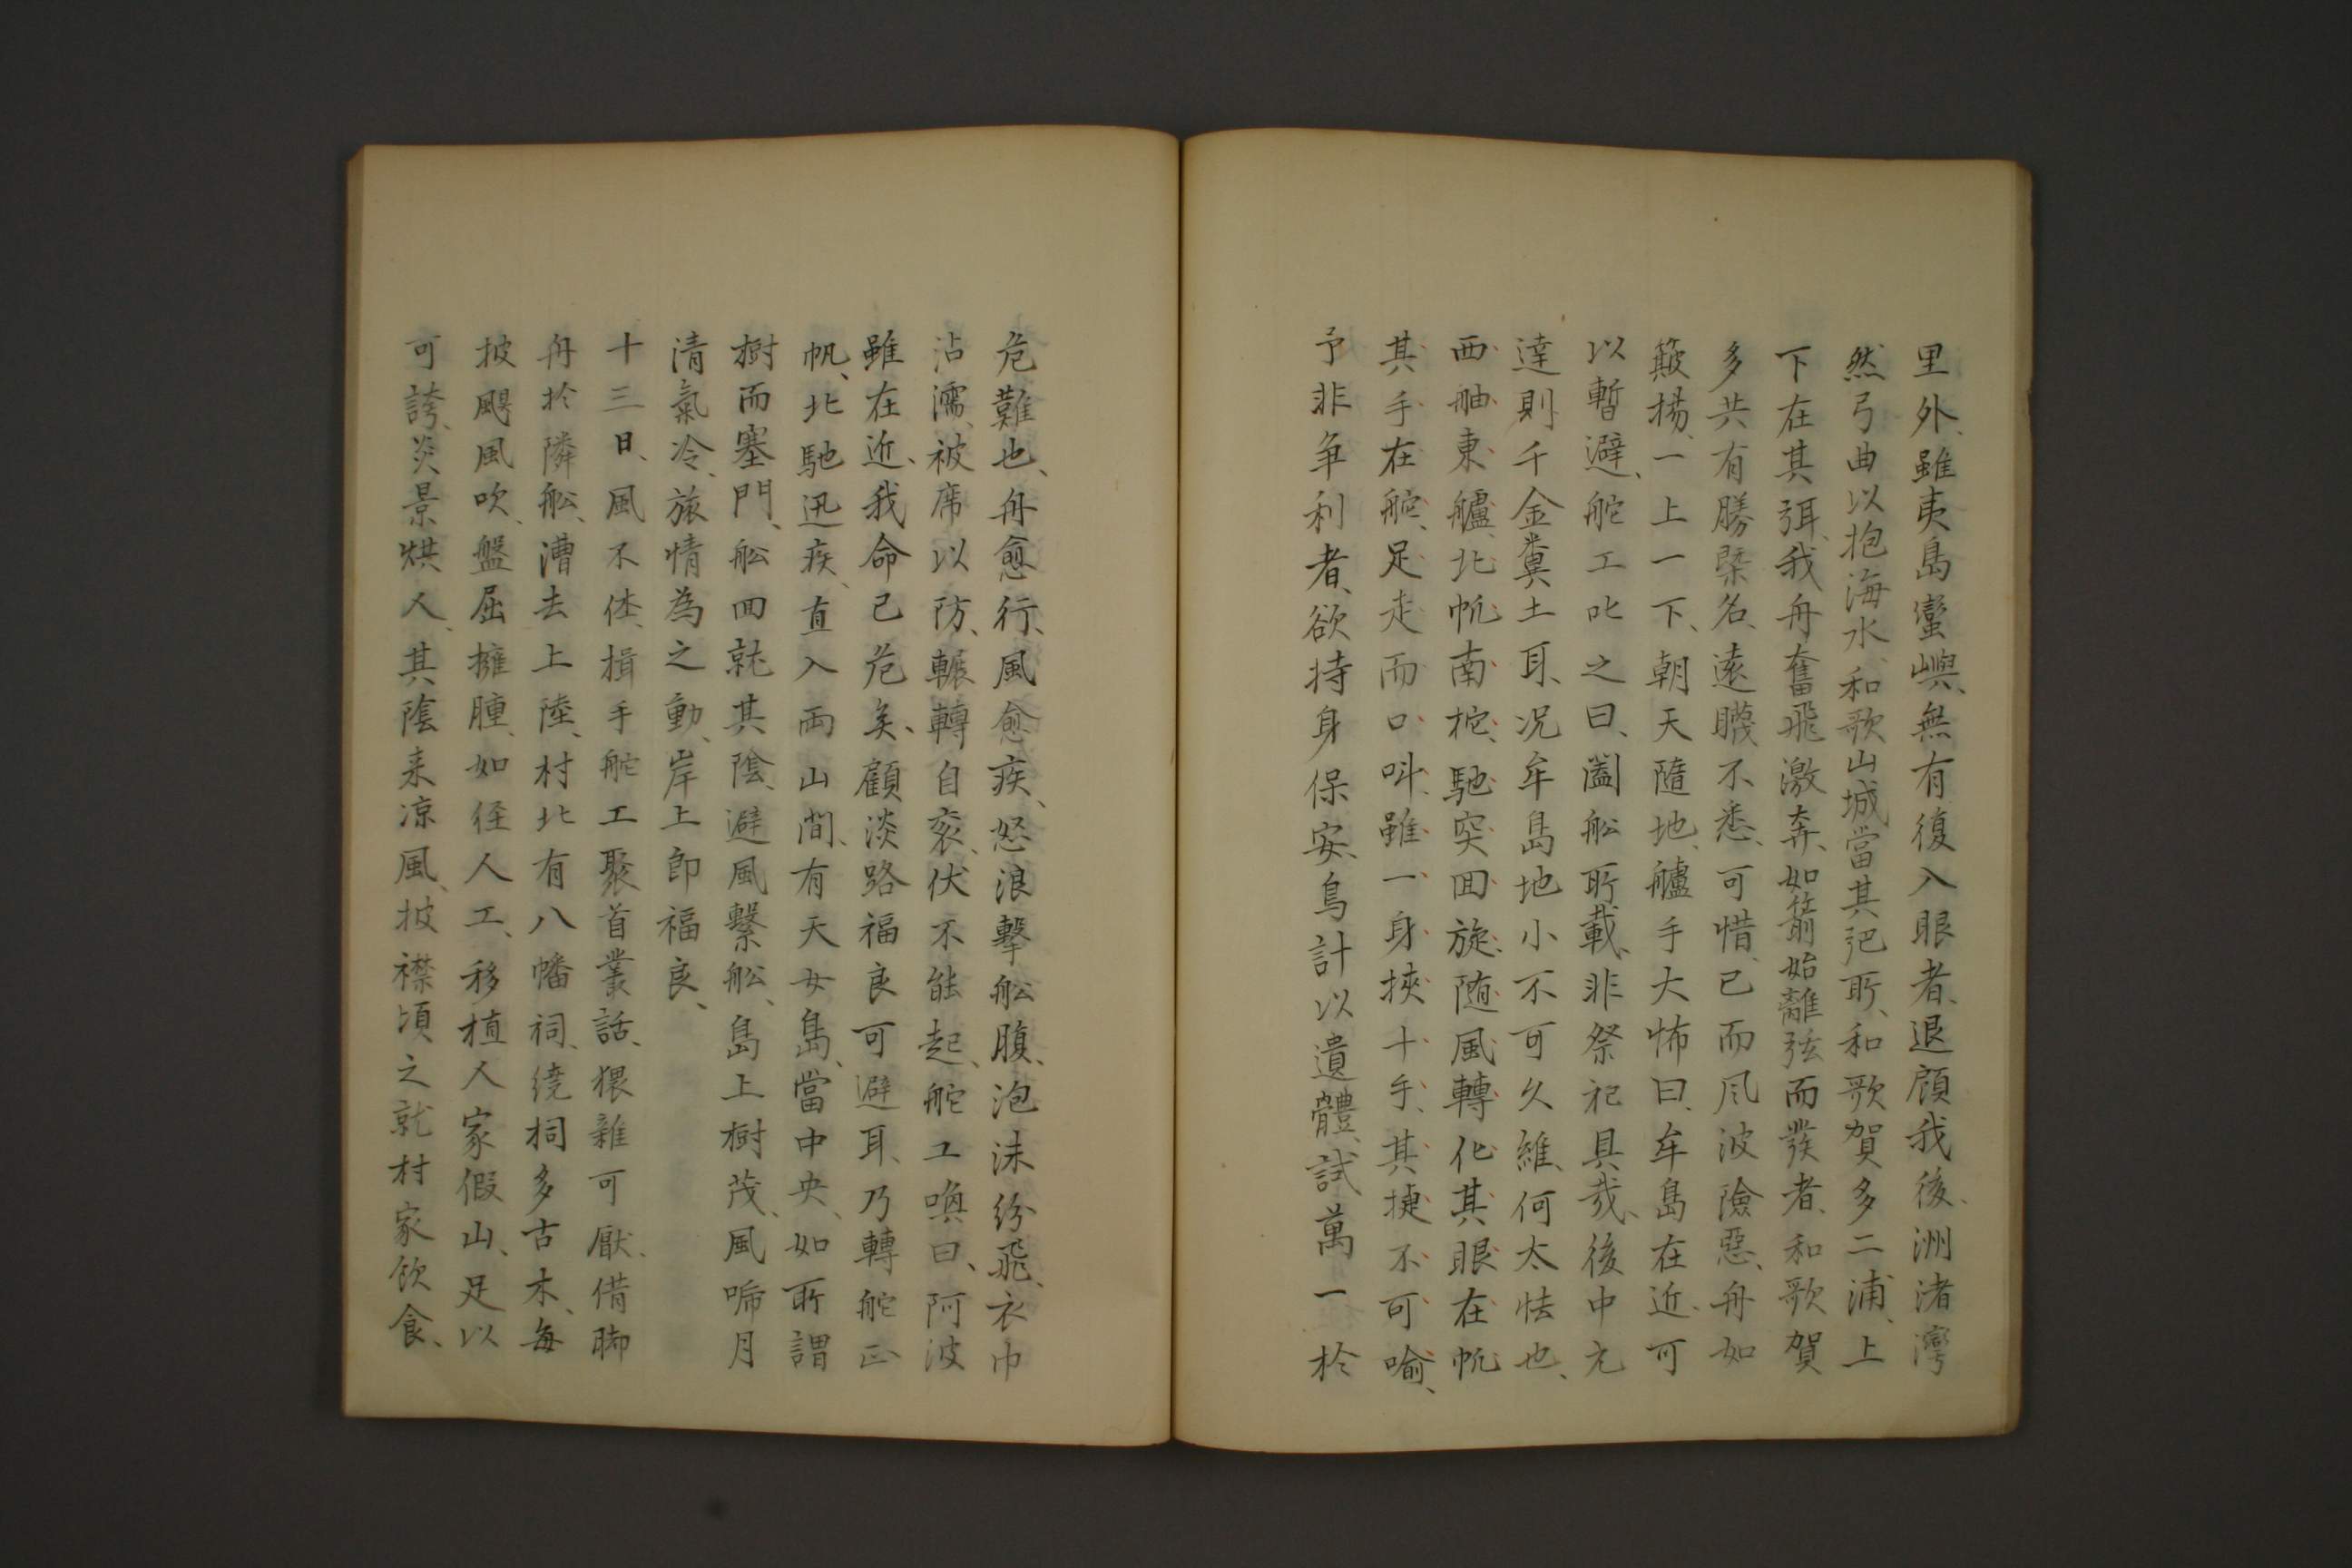 里外、雖夷島蠻嶼、無有復入眼者、退顧我後、洲渚灣
然弓曲以抱海水、和歌山城當其弝所、和歌賀多二浦、上
下在其弭、我舟奮飛激奔、如箭始離弦而發者、和歌賀
多共有勝槩名、遠矋不悉、可惜、已而風波險惡、舟如
簸揚、一上一下、朝天隨地、艫手大怖曰、牟島在近、可
以暫避、舵工叱之曰、闔舩所載、非祭祀具哉、後中元
達則千金糞土耳、况牟島地小不可久維、何太怯也、
西舳東艫、北帆南柁、馳突回旋、随風轉化、其眼在帆
其手在舵、足走而口叫、雖一身挾十手、其捷不可喻、
予非争利者、欲持身保安、烏計以遺體、試萬一於
危難也、舟愈行、風愈疾、怒浪擊舩腹、泡沫紛飛、衣巾
沾濡、被席以防、輾轉自衮、伏不能起、舵工喚曰、阿波
雖在近、我命已危矣、顧淡路福良可避耳、乃轉舵正
帆、北馳迅疾、直入両山間、有天女島、當中央、如所謂
樹而塞門、舩回就其陰、避風繫舩、島上樹茂、風啼月
清氣冷、旅情為之動、岸上即福良、
十三日、風不佳、揖手舵工聚首叢話、猥雜可厭、借脚
舟於隣舩、漕去上陸、村北有八幡祠、繞祠多古木、每
披颶風吹、盤屈擁腫、如径人工、移植人家假山、足以
可誇、炎景烘人、其陰来凉風、披襟頃之就村家飲食、